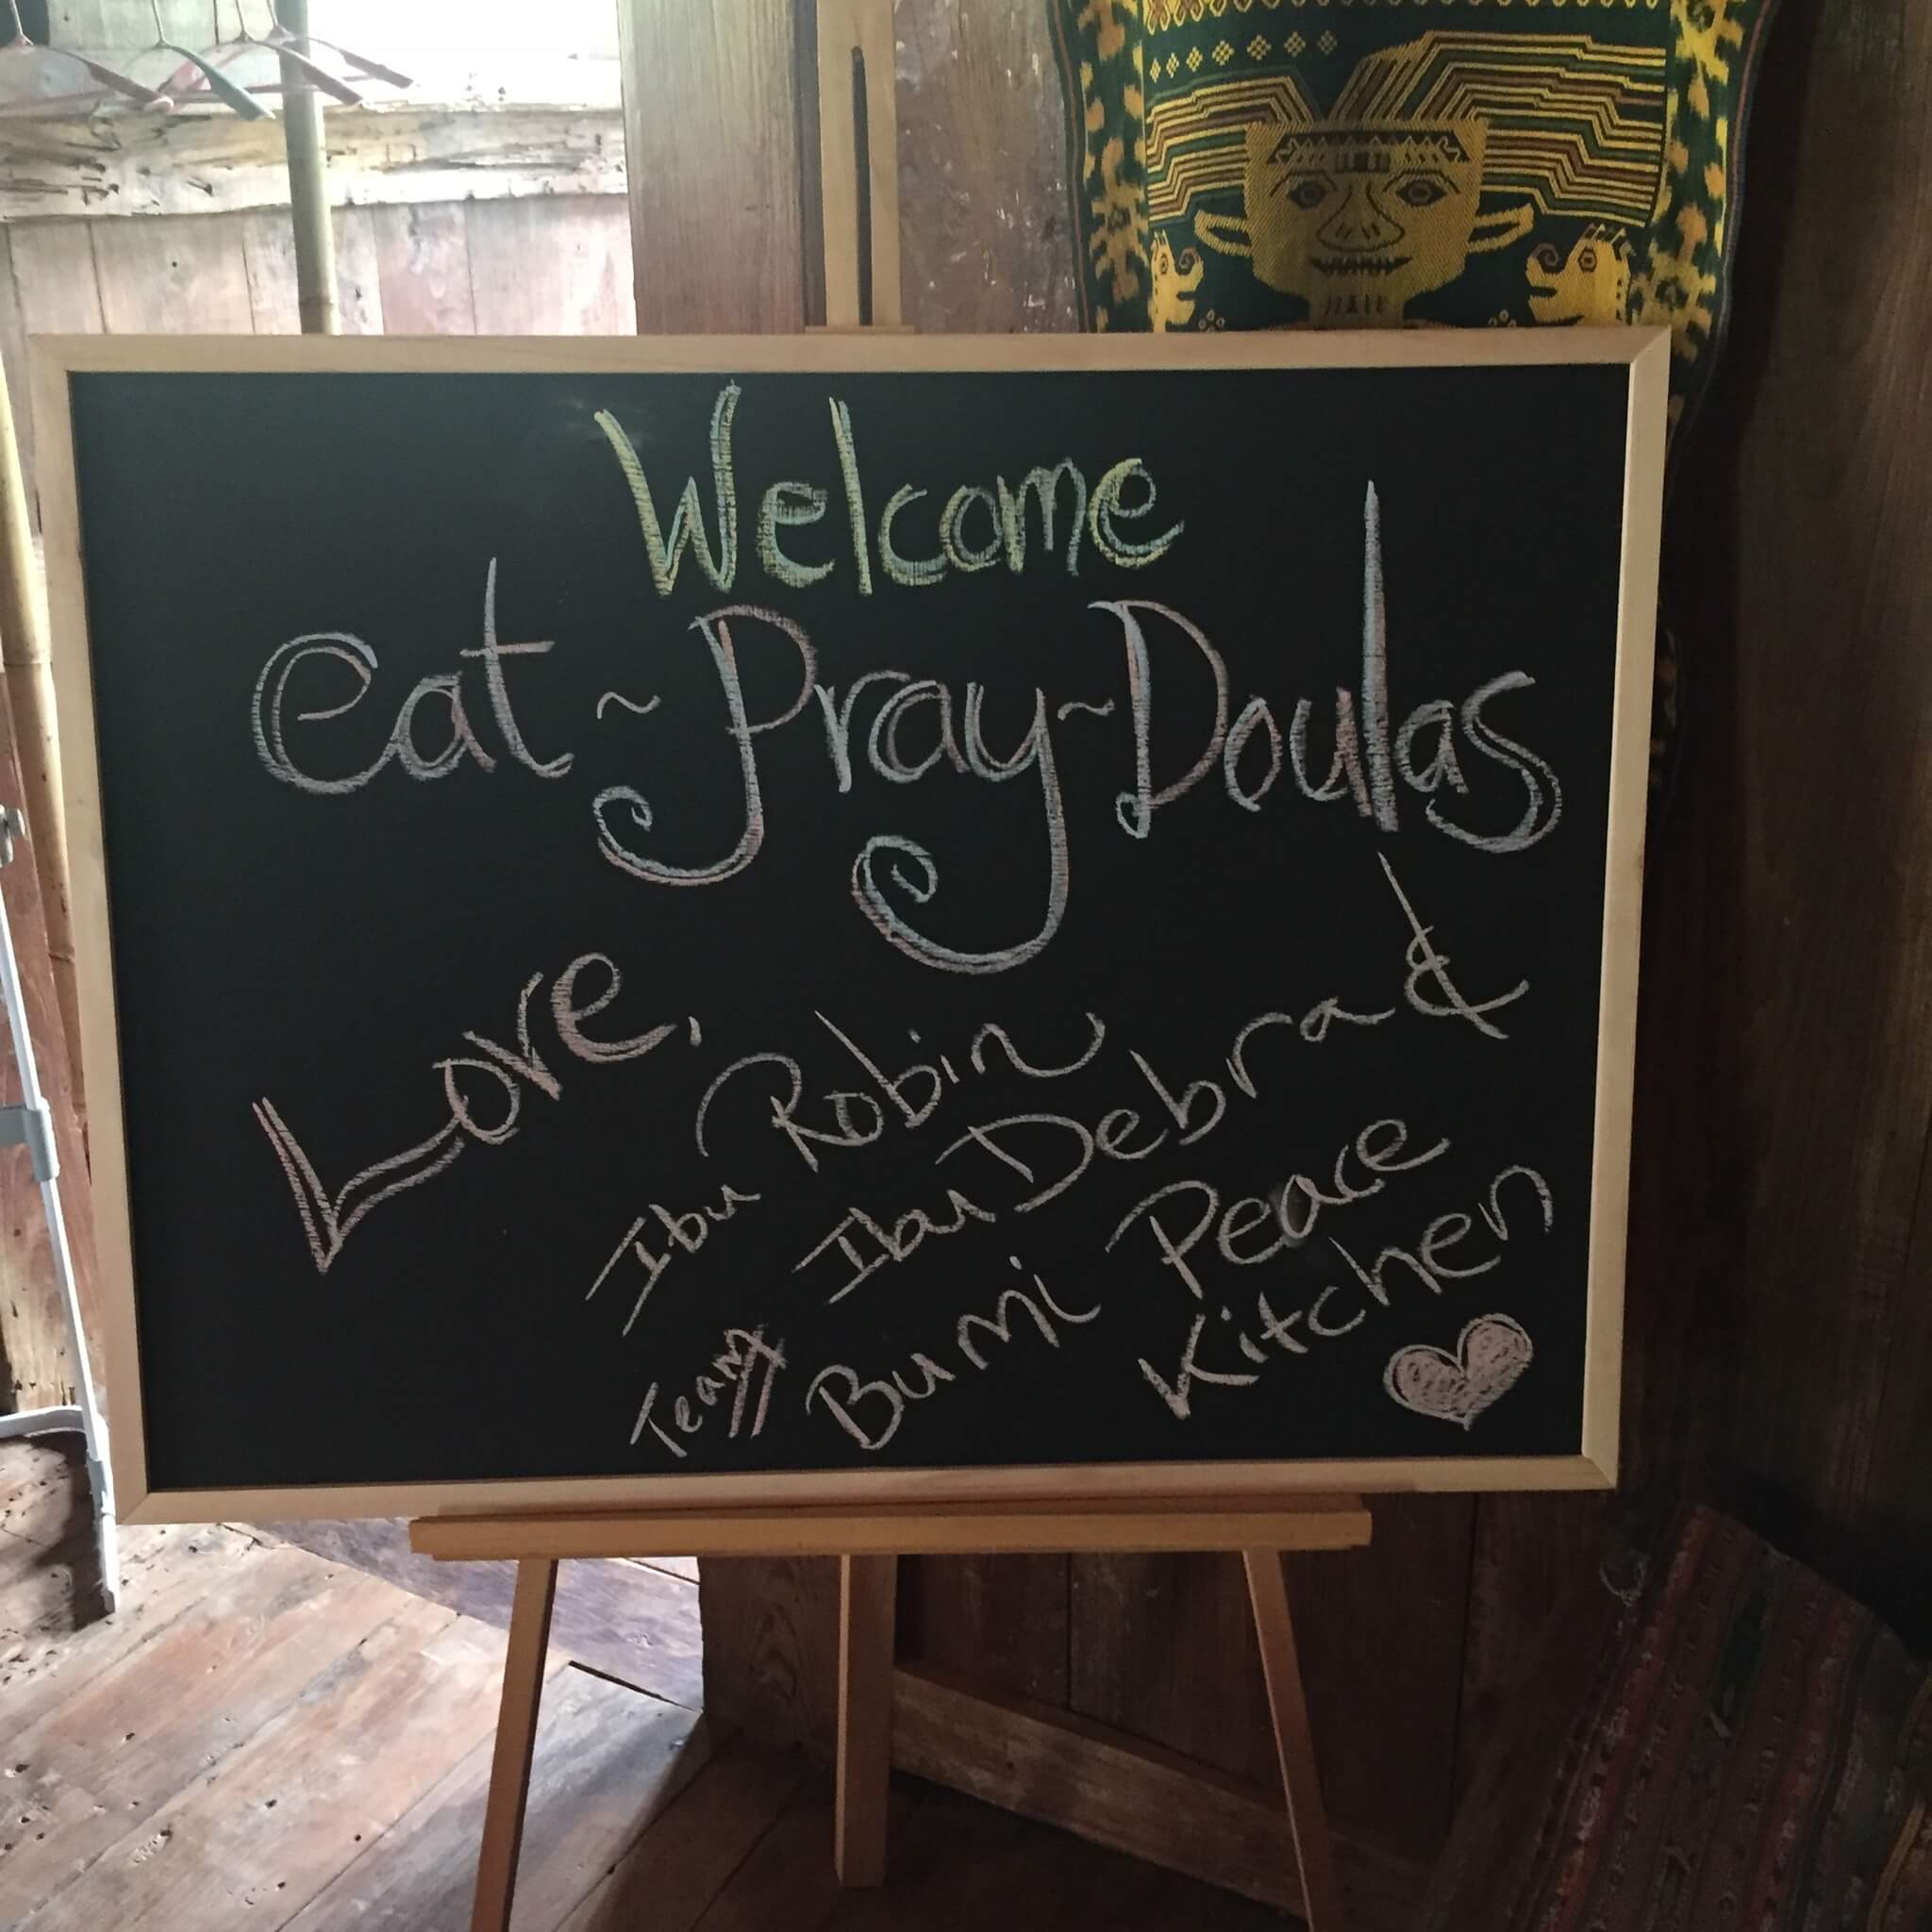 Welcome
Eat ~ Pray ~ Doulas
Love,
Ibu Robin
Ibu Debra &
Team Bumi Peace
Kitchen